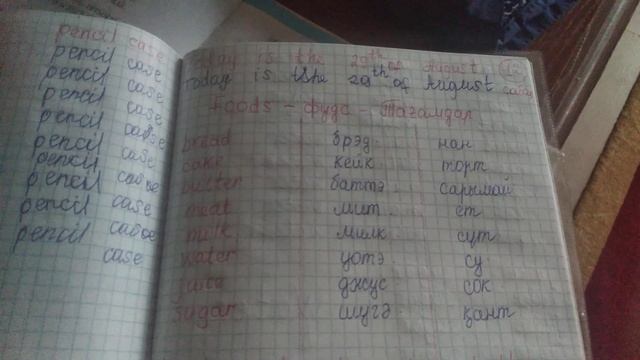 pencil case
pencil case
pencil case
pencil case
pencil case
pencil case
pencil case
pencil case
pencil case
pencil case
case
Today is the 29th of August
Today is the 29th of August
Foods - фудс - Тағамдар
bread брэд нан
cake кейк торт
butter баттэ сарымай
meat мит ет
milk милк сүт
water уотэ су
juice джус сок
sugar шугэ қант